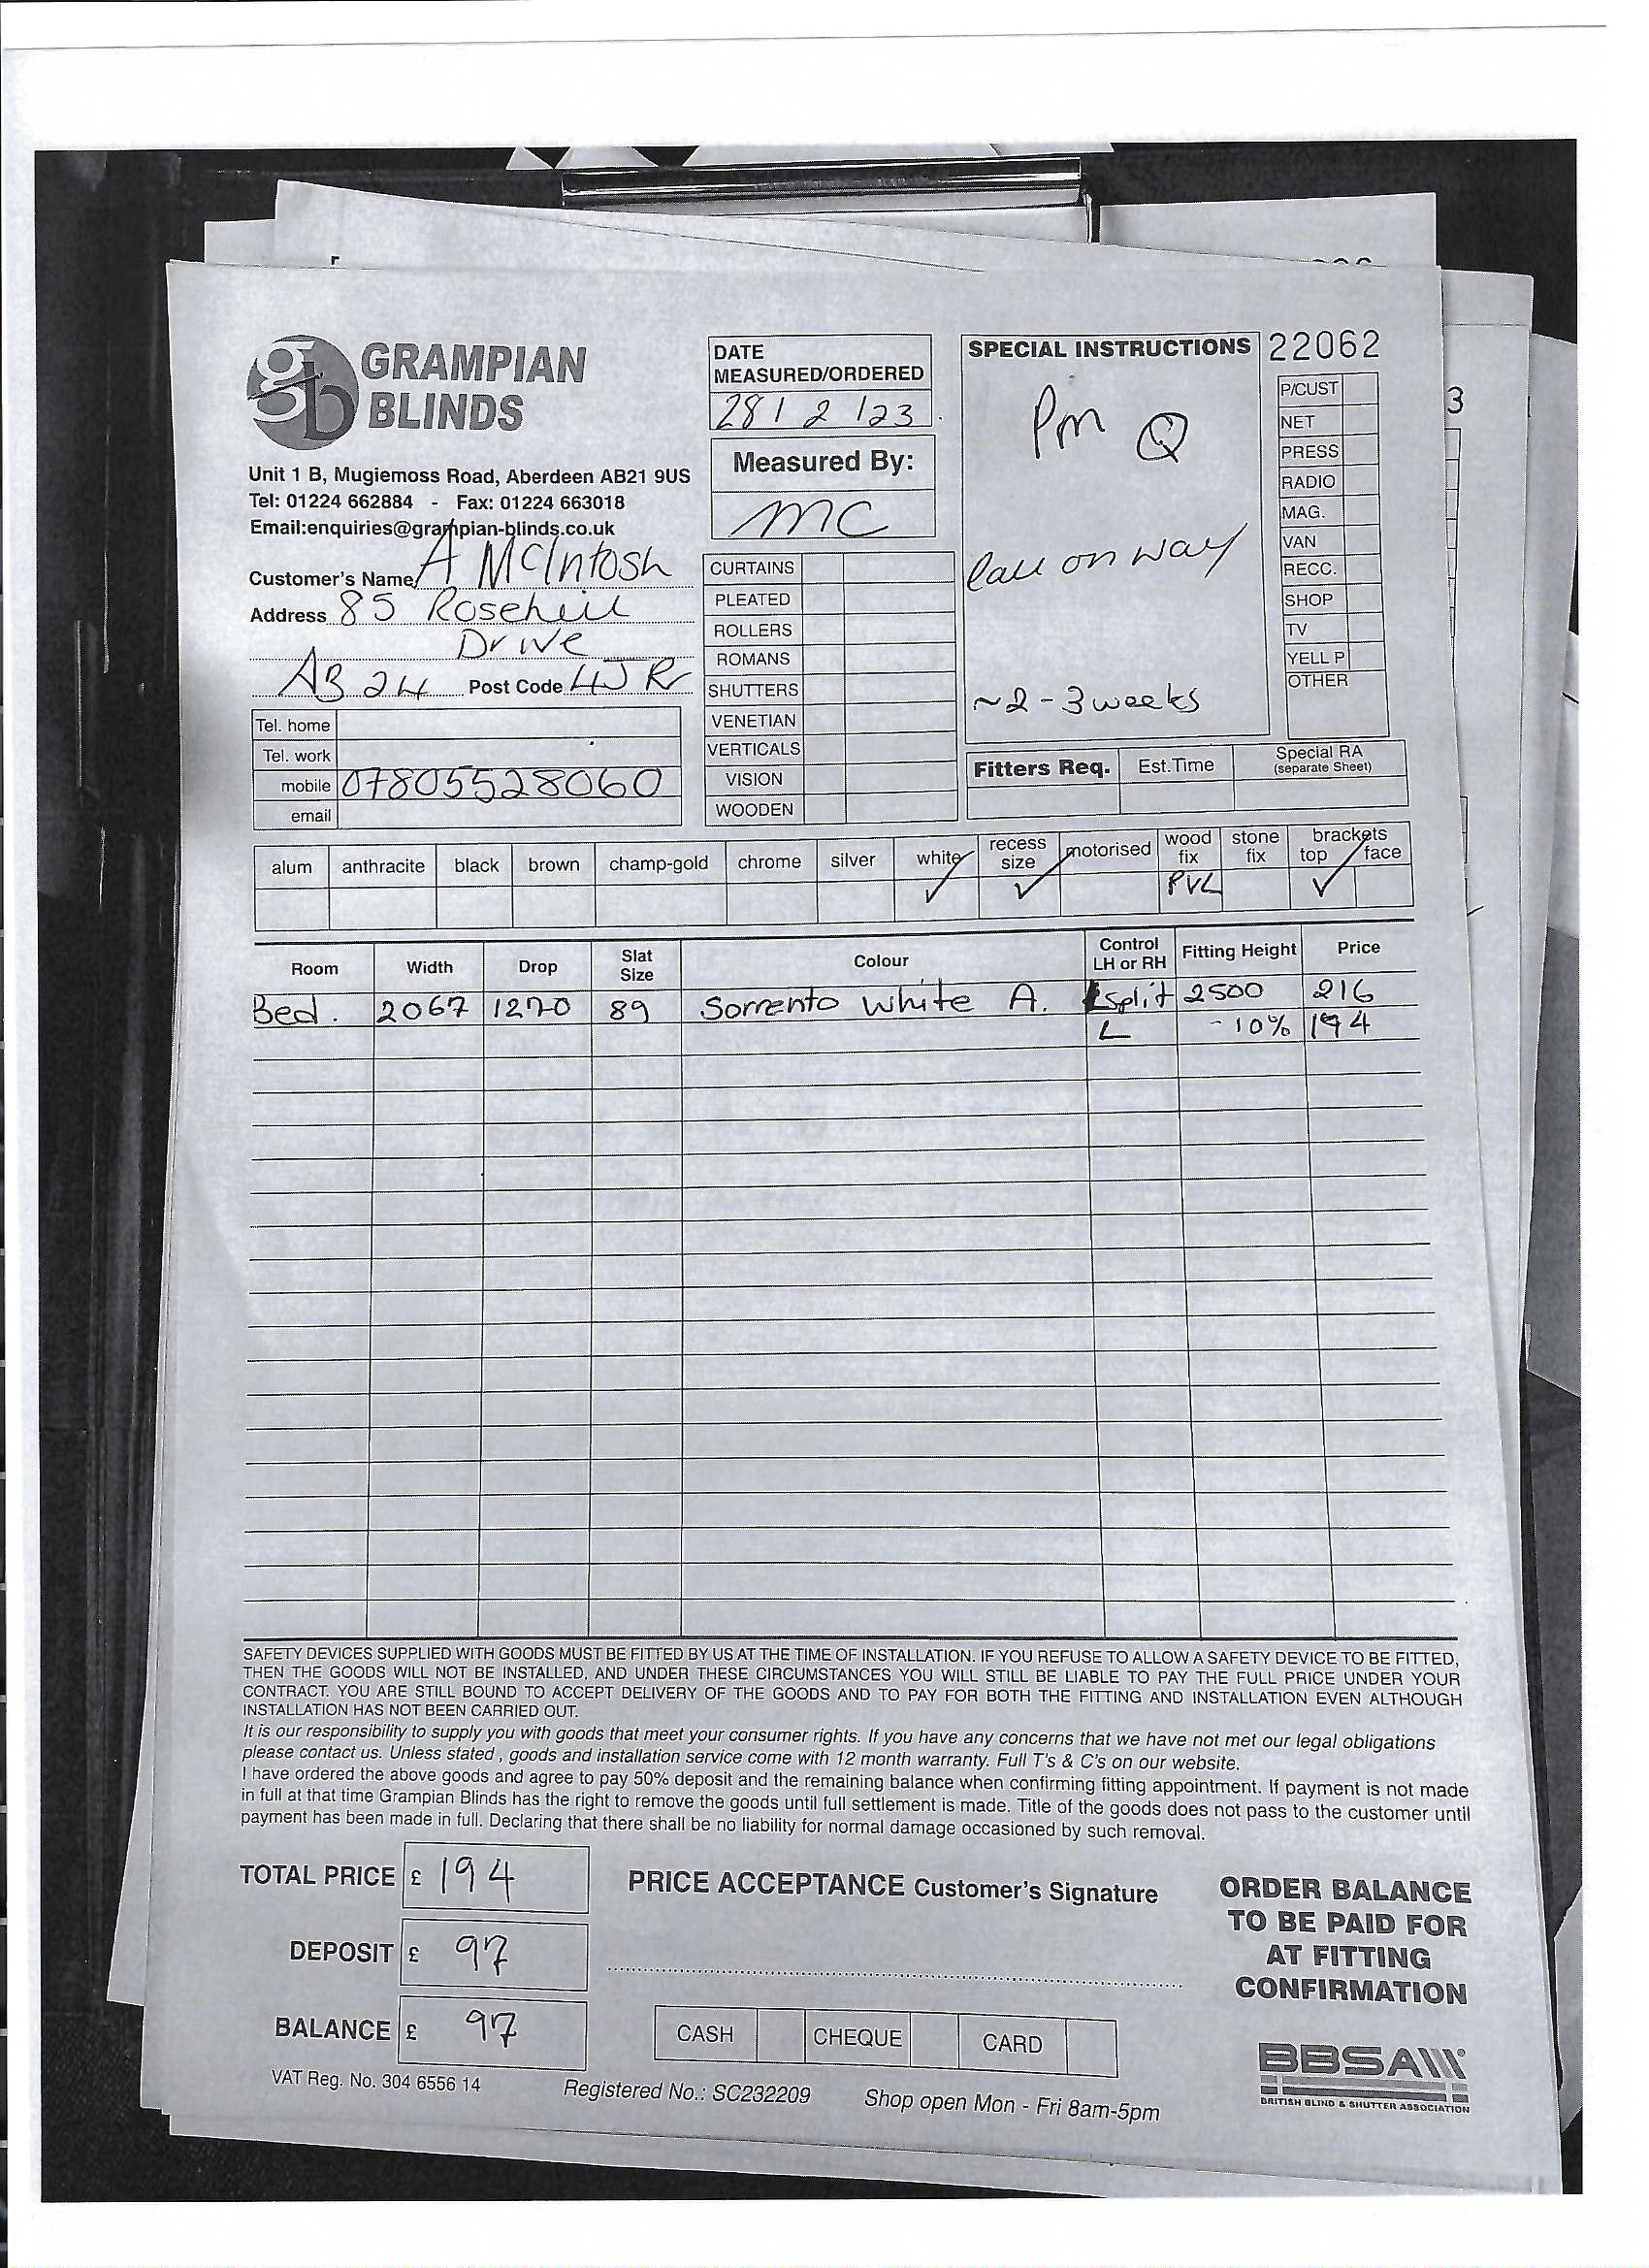 GRAMPIAN
BLINDS
Unit 1 B, Mugiemoss Road, Aberdeen AB21 9US
Tel: 01224 662884 - Fax: 01224 663018
Email:enquiries@grampian-blinds.co.uk
Customer's Name A McIntosh
Address 85 Rosehill
Drive
AB24 Post Code 4JR
Tel. home
Tel. work
mobile 07805528060
email
DATE
MEASURED/ORDERED
28 / 2 / 23
Measured By:
MC
CURTAINS
PLEATED
ROLLERS
ROMANS
SHUTTERS
VENETIAN
VERTICALS
VISION
WOODEN
SPECIAL INSTRUCTIONS
Pm Q
Call on way
~2-3 weeks
22062
P/CUST
NET
PRESS
RADIO
MAG.
VAN
RECC.
SHOP
TV
YELL P
OTHER
3
Fitters Req. Est.Time Special RA
(separate Sheet)
alum anthracite black brown champ-gold chrome silver white recess size motorised wood fix stone fix brackets top face
✓ ✓ PVC ✓
Room Width Drop Slat Size Colour Control LH or RH Fitting Height Price
Bed. 2067 1270 89 Sorrento White A. Split 2500 216
L -10% 194
SAFETY DEVICES SUPPLIED WITH GOODS MUST BE FITTED BY US AT THE TIME OF INSTALLATION. IF YOU REFUSE TO ALLOW A SAFETY DEVICE TO BE FITTED,
THEN THE GOODS WILL NOT BE INSTALLED, AND UNDER THESE CIRCUMSTANCES YOU WILL STILL BE LIABLE TO PAY THE FULL PRICE UNDER YOUR
CONTRACT. YOU ARE STILL BOUND TO ACCEPT DELIVERY OF THE GOODS AND TO PAY FOR BOTH THE FITTING AND INSTALLATION EVEN ALTHOUGH
INSTALLATION HAS NOT BEEN CARRIED OUT.
It is our responsibility to supply you with goods that meet your consumer rights. If you have any concerns that we have not met our legal obligations
please contact us. Unless stated , goods and installation service come with 12 month warranty. Full T's & C's on our website.
I have ordered the above goods and agree to pay 50% deposit and the remaining balance when confirming fitting appointment. If payment is not made
in full at that time Grampian Blinds has the right to remove the goods until full settlement is made. Title of the goods does not pass to the customer until
payment has been made in full. Declaring that there shall be no liability for normal damage occasioned by such removal.
TOTAL PRICE £ 194
DEPOSIT £ 97
BALANCE £ 97
PRICE ACCEPTANCE Customer's Signature
CASH CHEQUE CARD
ORDER BALANCE
TO BE PAID FOR
AT FITTING
CONFIRMATION
BBSA
BRITISH BLIND & SHUTTER ASSOCIATION
VAT Reg. No. 304 6556 14
Registered No.: SC232209
Shop open Mon - Fri 8am-5pm